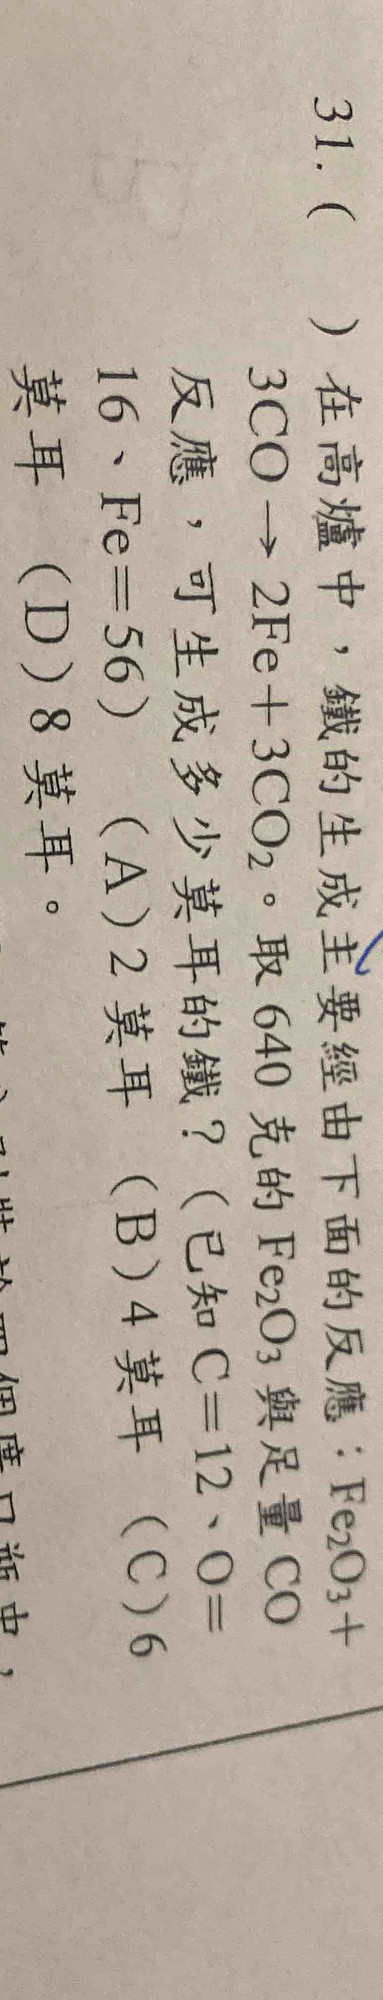 31.(　　)在高爐中，鐵的生成主要經由下面的反應：Fe₂O₃＋
3CO → 2Fe＋3CO₂。取 640 克的 Fe₂O₃ 與足量 CO
反應，可生成多少莫耳的鐵？（已知 C＝12、O＝
16、Fe＝56）　(A) 2 莫耳　(B) 4 莫耳　(C) 6
莫耳　(D) 8 莫耳。